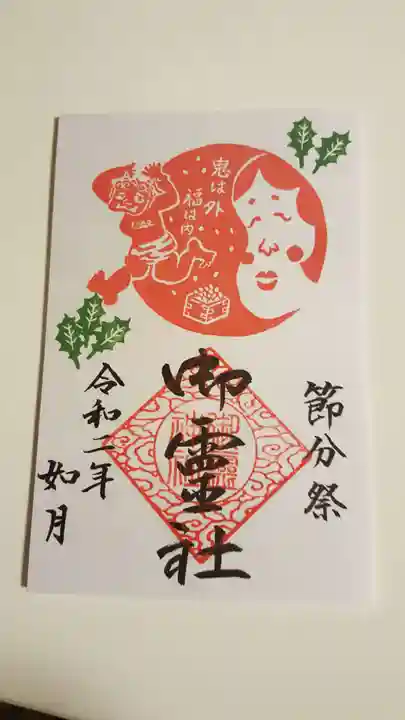 鬼は外
福は内
節分祭
御靈社
令和二年
如月